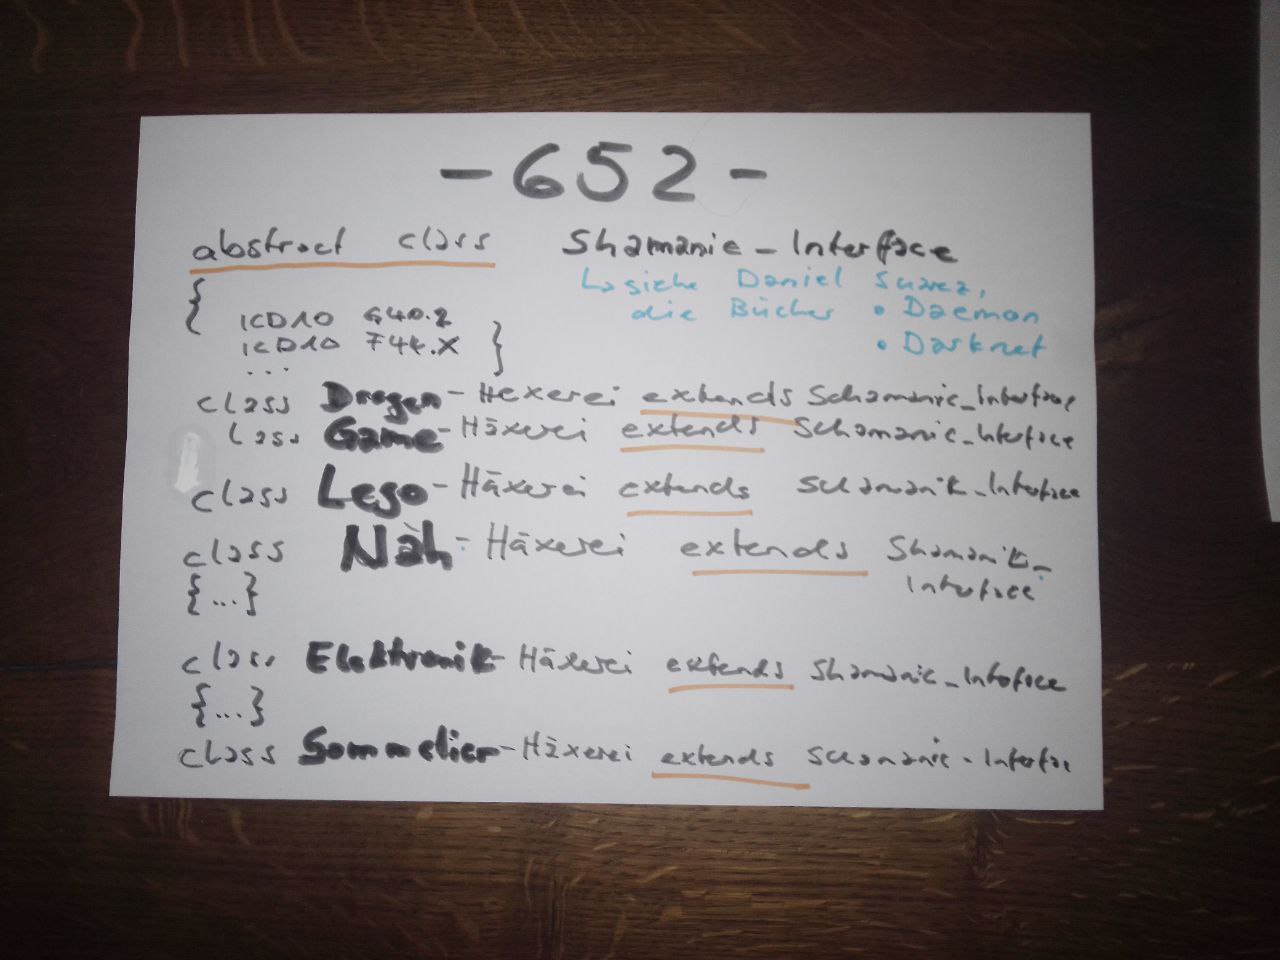 - 652 -
abstract class Shamanic_Interface
↳ siehe Daniel Suarez,
{ die Bücher • Daemon
ICD10 G40.2 • Darknet
ICD10 F44.X }
...
class Drogen-Hexerei extends Schamanic_Interface
class Game-Häxerei extends Schamanic_Interface
class Lego-Häxerei extends Schamanik_Interface
class Näh-Häxerei extends Shamanik_
Interface
{...}
class Elektronik-Häxerei extends Shamanic_Interface
{...}
class Sommelier-Häxerei extends Schamanic-Interface